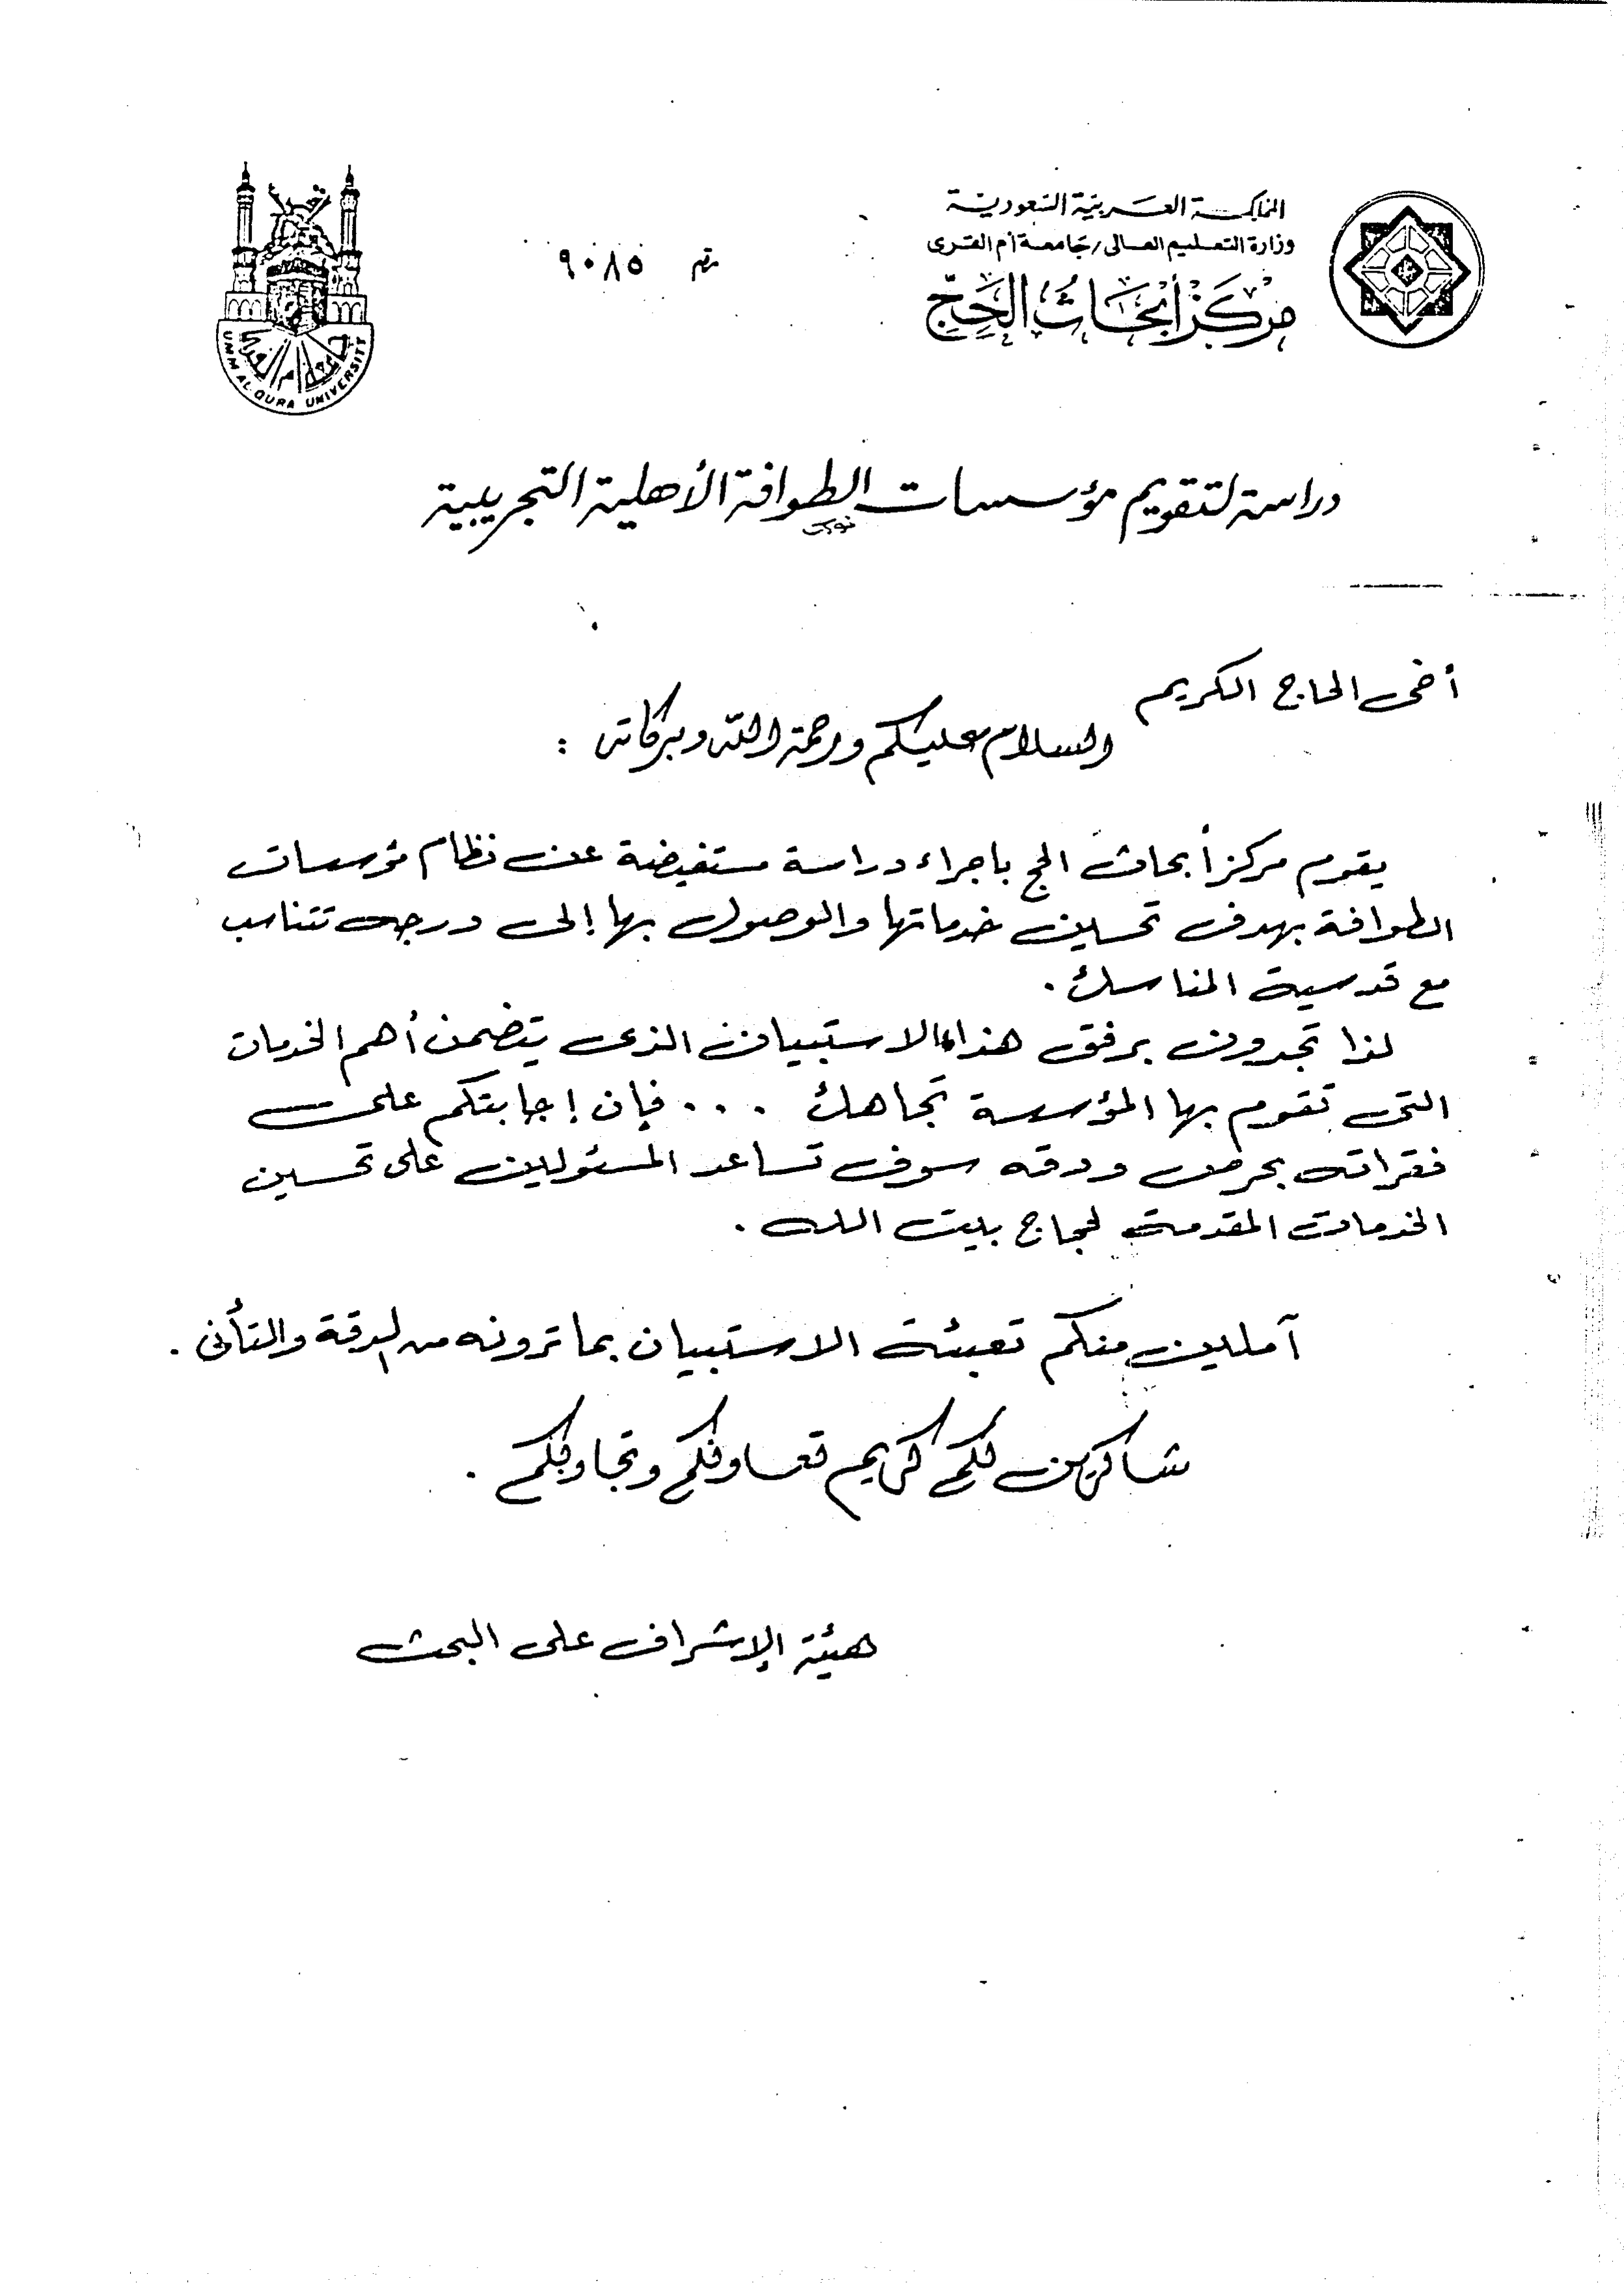 المملكة العربية السعودية
وزارة التعليم العالى / جامعة أم القرى
مركز أبحاث الحج
رقم ٩٠٨٥
جامعة أم القرى
UMM AL-QURA UNIVERSITY
دراسة لتقويم مؤسسات الطوافة الأهلية التجريبية
أخى الحاج الكريم
السلام عليكم ورحمة الله وبركاته :
يقوم مركز أبحاث الحج باجراء دراسة مستفيضة عن نظام مؤسسات
الطوافة بهدف تحسين خدماتها والوصول بها إلى درجه تتناسب
مع قدسية المناسك .
لذا تجدون برفق هذا الاستبيان الذى يتضمن أهم الخدمات
التى تقوم بها المؤسسة تجاهك . . . فإن إجابتكم على
فقراته بحرص ودقه سوف تساعد المسئولين على تحسين
الخدمات المقدمة لحجاج بيت الله .
آملين منكم تعبئة الاستبيان بما ترونه من الدقة والتأنى .
شاكرين لكم كريم تعاونكم وتجاوبكم .
هيئة الإشراف على البحث